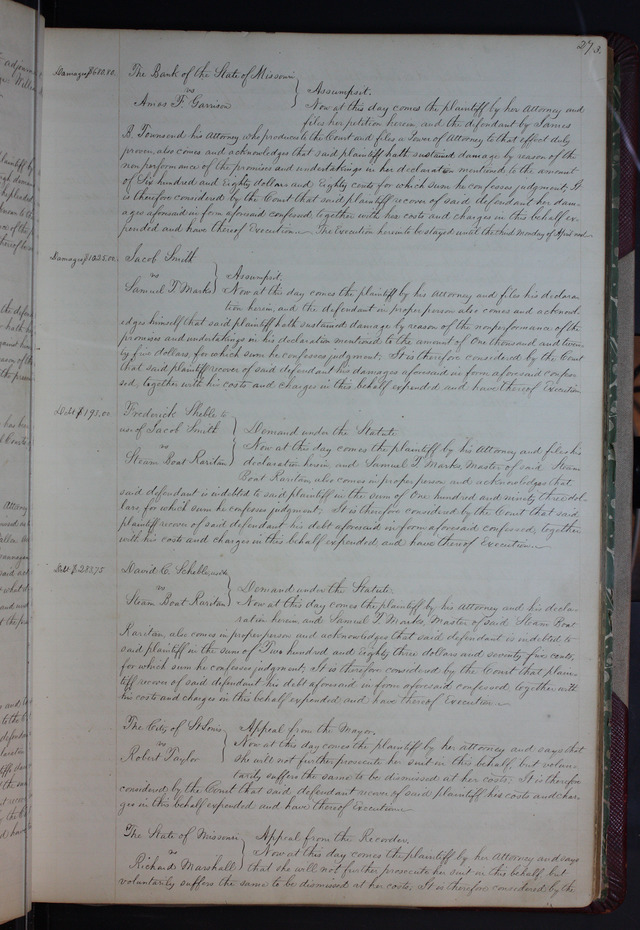 273.
Damages $680.80. The Bank of the State of Missouri
vs } Assumpsit.
Amos F. Garrison Now at this day comes the plaintiff by her Attorney and
files her petition herein, and the defendant by James
B. Townsend his Attorney who produces to the Court and files a Power of Attorney to that effect duly
proven, also comes and acknowledges that said plaintiff hath sustained damage by reason of the
non performance of the promises and undertakings in her declaration mentioned to the amount
of Six hundred and Eighty dollars and Eighty cents for which sum he confesses judgment; It
is therefore considered by the Court that said plaintiff recover of said defendant her dam-
ages aforesaid in form aforesaid confessed, together with her costs and charges in this behalf ex-
pended and have thereof Execution. The Execution herein to be stayed until the 2nd Monday of April next.
Damages $1025.00. Jacob Smith
vs } Assumpsit.
Samuel T. Marks Now at this day comes the plaintiff by his Attorney and files his declara-
tion herein, and the defendant in proper person also comes and acknowl-
edges himself that said plaintiff hath sustained damage by reason of the nonperformance of the
promises and undertakings in his declaration mentioned to the amount of One thousand and twen-
ty five dollars, for which sum he confesses judgment; It is therefore considered by the Court
that said plaintiff recover of said defendant his damages aforesaid in form aforesaid confes-
sed, together with his costs and charges in this behalf expended and have thereof Execution
Debt $193.00. Frederick Sheble to
use of Jacob Smith } Demand under the Statute
vs Now at this day comes the plaintiff by his Attorney and files his
Steam Boat Raritan declaration herein and Samuel T. Marks Master of said Steam
Boat Raritan also comes in proper person and acknowledges that
said defendant is indebted to said plaintiff in the sum of One hundred and ninety three dol-
lars for which sum he confesses judgment; It is therefore considered by the Court that said
plaintiff recover of said defendant his debt aforesaid in form aforesaid confessed, together
with his costs and charges in this behalf expended and have thereof Execution
Debt $283.75 David C. Scheble
vs } Demand under the Statute.
Steam Boat Raritan Now at this day comes the plaintiff by his attorney and his decla-
ration herein, and Samuel T. Marks, Master of said Steam Boat
Raritan, also comes in proper person and acknowledges that said defendant is indebted to
said plaintiff in the sum of Two hundred and Eighty three dollars and seventy five cents,
for which sum he confesses judgment; It is therefore considered by the Court that plain-
tiff recover of said defendant his debt aforesaid in form aforesaid confessed, together with
his costs and charges in this behalf expended and have thereof Execution
The City of St Louis } Appeal from the Mayor.
vs Now at this day comes the plaintiff by her attorney and says that
Robert Taylor she will not further prosecute her suit in this behalf, but volun-
tarily suffers the same to be dismissed at her costs; It is therefore
considered by the Court that said defendant recover of said plaintiff his costs and char-
ges in this behalf expended and have thereof Execution
The State of Missouri } Appeal from the Recorder.
vs Now at this day comes the plaintiff by her Attorney and says
Richard Marshall that she will not further prosecute her suit in this behalf but
voluntarily suffers the same to be dismissed at her costs; It is therefore considered by the